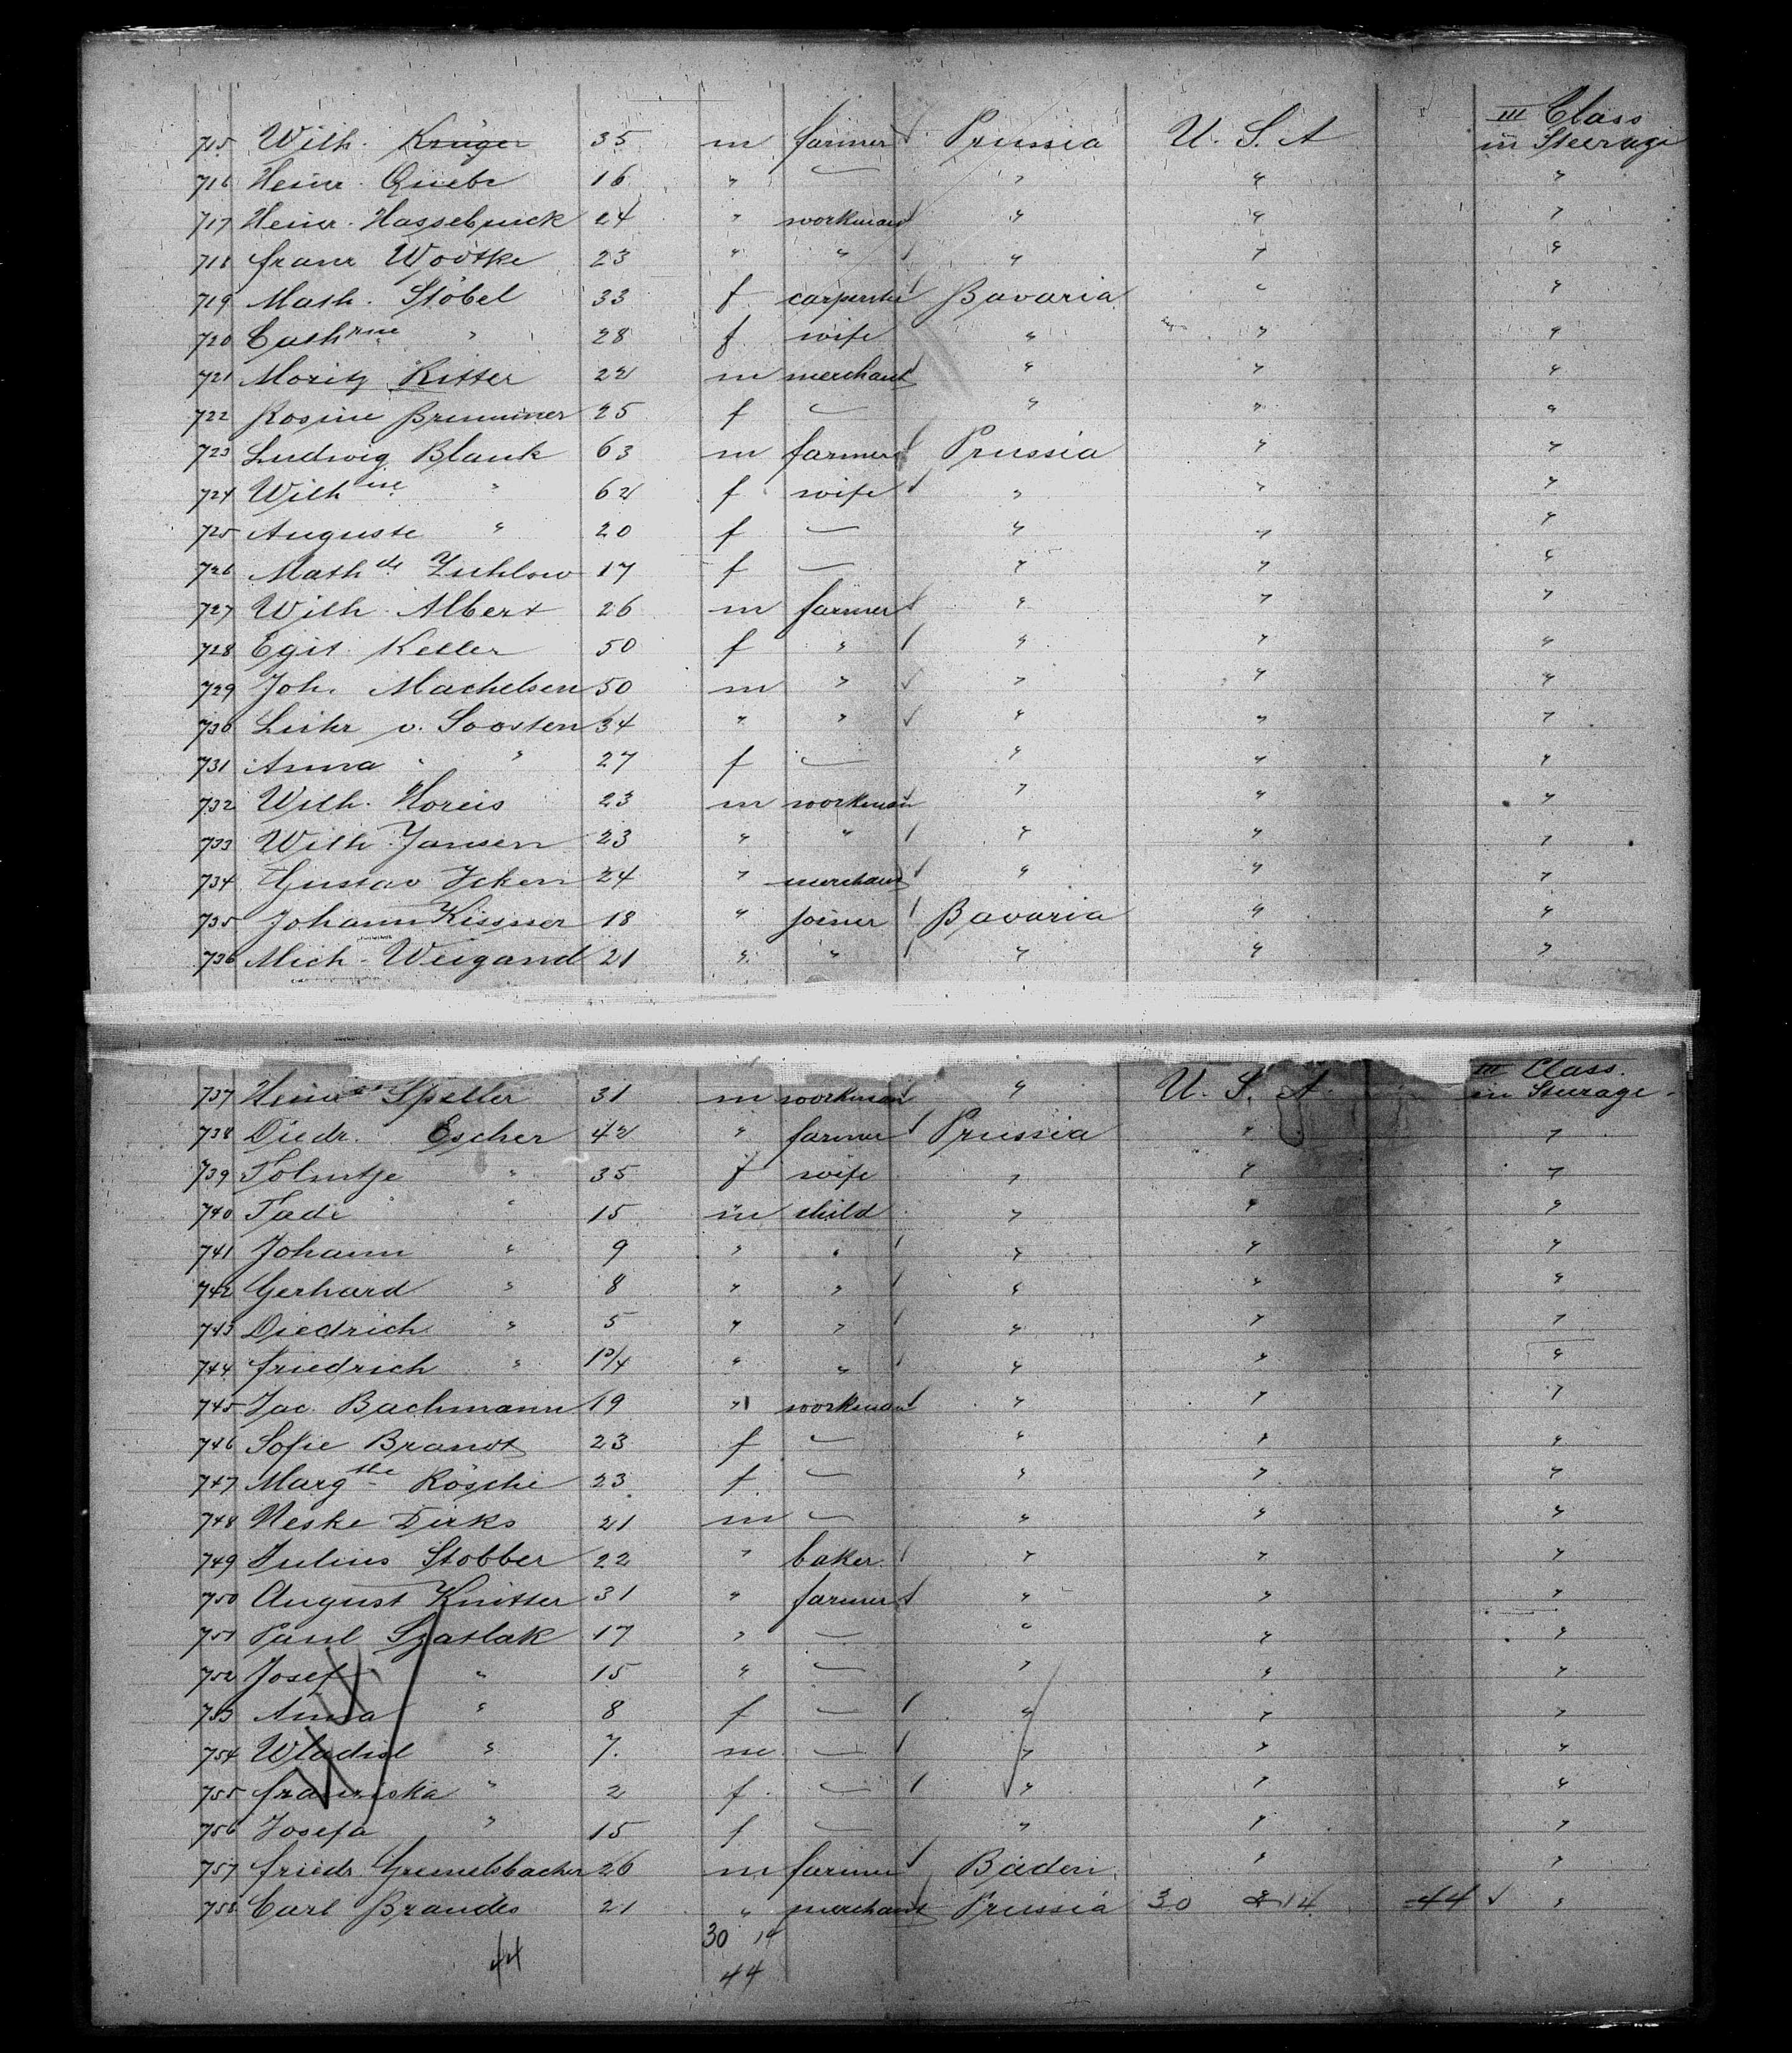 III Class
715 Wilh. Krüger 35 m farmer Prussia U. S. A in Steerage
716 Heinr. Quebe 16 " — " " "
717 Heinr. Hassebruck 24 " workman " " "
718 Franz Wodtke 23 " " " " "
719 Math. Stöbel 33 f carpenter Bavaria " "
720 Cathrine " 28 f wife " " "
721 Moritz Ritter 22 m merchant " " "
722 Rosine Brummer 25 f — " " "
723 Ludwig Blank 63 m farmer Prussia " "
724 Wilhne " 62 f wife " " "
725 Auguste " 20 f — " " "
726 Mathde Zuhlow 17 f — " " "
727 Wilh. Albert 26 m farmer " " "
728 Egit Keller 50 f " " " "
729 Joh. Machelsen 50 m " " " "
730 Lühr v. Soosten 34 " " " " "
731 Anna " " 27 f — " " "
732 Wilh. Horeis 23 m workman " " "
733 Wilh. Jansen 23 " " " " "
734 Gustav Icken 24 " merchant " " "
735 Johann Kissner 18 " joiner Bavaria " "
736 Mich. Weigand 21 " " " " "
III Class.
737 Heinr Speller 31 m workman " U. S. A in Steerage
738 Diedr. Escher 42 " farmer Prussia " "
739 Tolmtje " 35 f wife " " "
740 Tade " 15 m child " " "
741 Johann " 9 " " " " "
742 Gerhard " 8 " " " " "
743 Diedrich " 5 " " " " "
744 Friedrich " " " " " "
745 Jac. Bachmann 19 " workman " " "
746 Sofie Brandt 23 f — " " "
747 Margthe Rösche 23 f — " " "
748 Heske Dirks 21 m — " " "
749 Julius Stobber 22 " baker " " "
750 August Knitter 31 " farmer " " "
751 Paul Szatlak 17 " — " " "
752 Josef " 15 " — " " "
753 Anna " 8 f — " " "
754 Wladisl " 7 m — " " "
755 Franziska " 2 f — " " "
756 Josefa " 15 f — " " "
757 Friedr. Gremelsbacher 26 m farmer Baden " "
758 Carl Brandes 21 " merchant Prussia 30 14 44 "
30 14
44 44